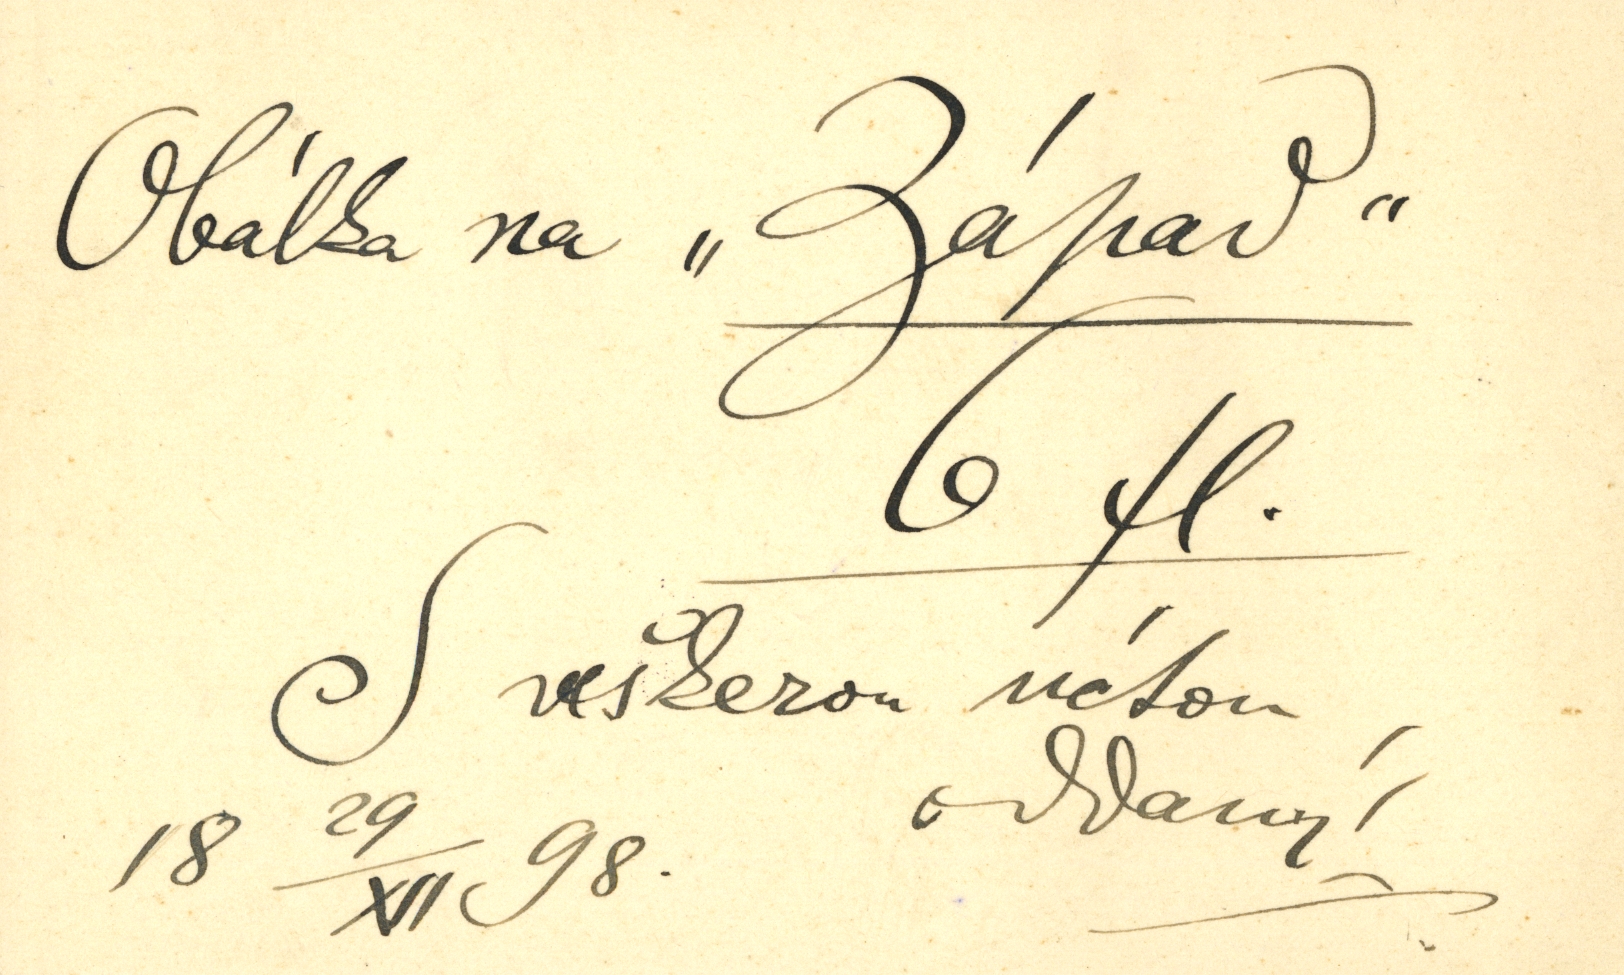 Obálka na „Západ“
6 fl.
S veškerou úctou
oddaný
18 29/XII 98.